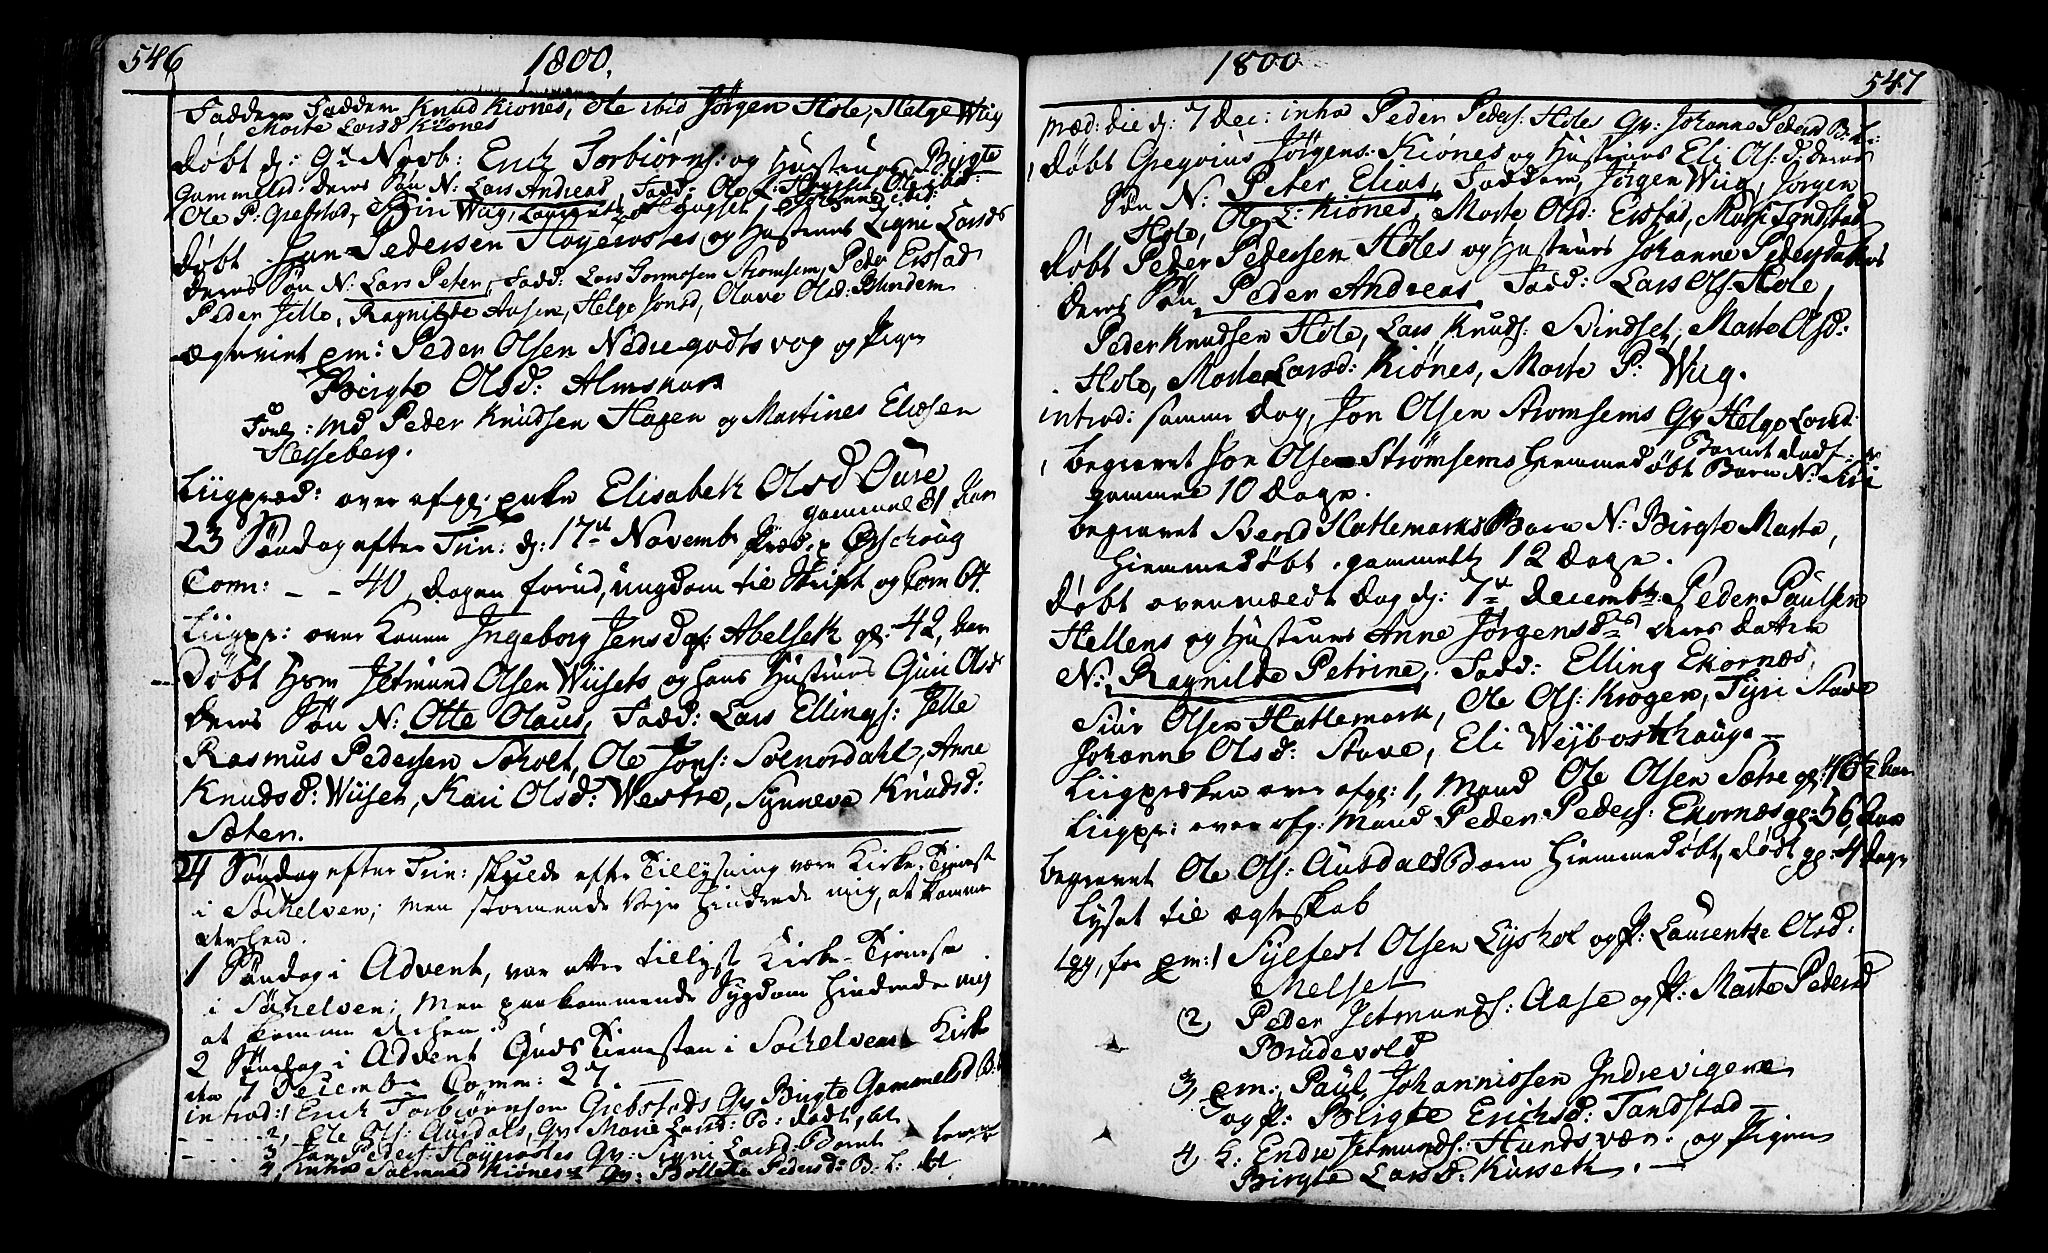 546
1800.
Faddere Knud Kiønes, Ole ibid Jørgen Hole, Helge Wiig
Marte Larsd Kiønes
døbt d: 9d Novb: Erich Torbiørns: og Hustrues Birgte
Gammelsd: deres Søn N: Lars Andreas, Fadd: Ole
Ole P: Grebstad, Siri Wiig,
døbt Jan Pedersen Høyevoltes og Hustrues Signe Larsd
deres Søn N: Lars Peter, Fadd: Lars Strømsem, Peder Erstad
Peder Jelle, Ragnilde Aasen, Helge Jonsd, Olave Olsd: Blindem
Ægteviet em: Peder Olsen Nedregodtsvog og Pigen
Birgte Olsd: Almskar
Forl: Md Peder Knudsen Hagen og Martines Eliæsen
Hesseberg.
Liigpræd: over afg: enke Elisabeth Olsd Øure
gammel 81 Aar
23 Søndag efter Trin: d: 17d Novemb
Com: - - 40, dagen forud, ungdom til Skrift og Com 67.
Liigpr: over Konen Ingeborg Jensd Abelseth gl: 42, Aar
Døbt Hsm Jetmund Olsen Wiisets og hans Hustrues Guri Olsd
deres Søn N: Otte Olaus, Fadd: Lars Ellings: Jelle
Rasmus Pedersen Søholt, Ole Jons: Solnordahl, Anne
Knudsd: Wiiset, Kari Olsd: Westre, Synneve Knudsd:
Sæter.
24 Søndag efter Trin: skulde efter Tillysning være Kirke-Tjeneste
i Søckelven; men stormende Vejr hindrede mig, at komme
derhen.
1 Søndag i Advent, var atter tillyst Kirke-Tjeneste
i Søckelven; men paakommende Sygdom hindrede mig
at komme derhen.
2 Søndag i Advent Guds Tienesten i Søckelvens Kirke
den 7 Decembr Comm: 27.
introd: 1 Erich Torbiørnsen Grebstads Qv Birgte Gammelsd B:
2, Ole Ols: Aursdals, Qv Marie Larsd: B: dødt,
3 Jan Peders: Høyevoltes Qv: Signi Larsd: Barnet
4, Salmund Kiønes Qv: Bollette Pedersd: B: L:
1800
547
Mæd: die d: 7 Dec: Peder Peders: Holes Qv: Johanne Pedersd B: L:
døbt Gregorius Jørgens: Kiønes og Hustrues Eli Olsd: deres
Søn N: Peter Elias, Faddere, Jørgen Wiig, Jørgen
Hole, Ole L: Kiønes, Marte Olsd: Erstad, Marte Tandstad
døbt Peder Pedersen Holes og Hustrues Johanne
deres Søn Peder Andreas Fadd: Lars Ols: Hole,
Peder Knudsen Hole, Lars Knuds: Bindset, Marte Olsd:
Hole, Marte Larsd: Kiønes, Marte P: Wiig.
introd: samme dag, Jon Olsen Strømsems Qv Helge Larsd:
Barnet dødt
begravet Jon Olsen Strømsems Hiemmedøbt Barn N: Siri
gammel 10 Dage.
begravet Svend Hatlemarks Barn N: Birgte Marta,
hiemmedøbt, gammelt 12 Dage.
døbt ovenmeldt Dag d: 7d Decembr: Peder Paulsen
Hellens og Hustrues Anne Jørgensd deres Datter
N: Ragnilde Petrine, Fadd: Elling Ekornæs,
Siur Olsen Hatlemark, Ole Ols: Krogen, Tyri Stave
Johanne Olsd: Stave, Eli Wejbostshaug.
Liigpræken over afg: 1, Mand Ole Olsen Sætre
Liigpr: over afg: Mand Peder Peders: Ekornæs gl: 56 Aar
begravet Ole Ols: Aursdals Barn hiemmedøbt, dødt gl: 4 Dage
Lyset til ægteskab
1gg, for em: 1 Sylfest Olsen Lyshol og P: Laurentze Olsd:
Melset
2, Peder Jetmunds: Aase og P: Marte Pedersd
Brudevold
3, em: Paul Johannissen Indrevigene
og P: Birgte Erichsd: Tandstad
4, E: Endre Jetmunds: Hundsvær. og Pigen
Birgte Larsd: Kurseth.